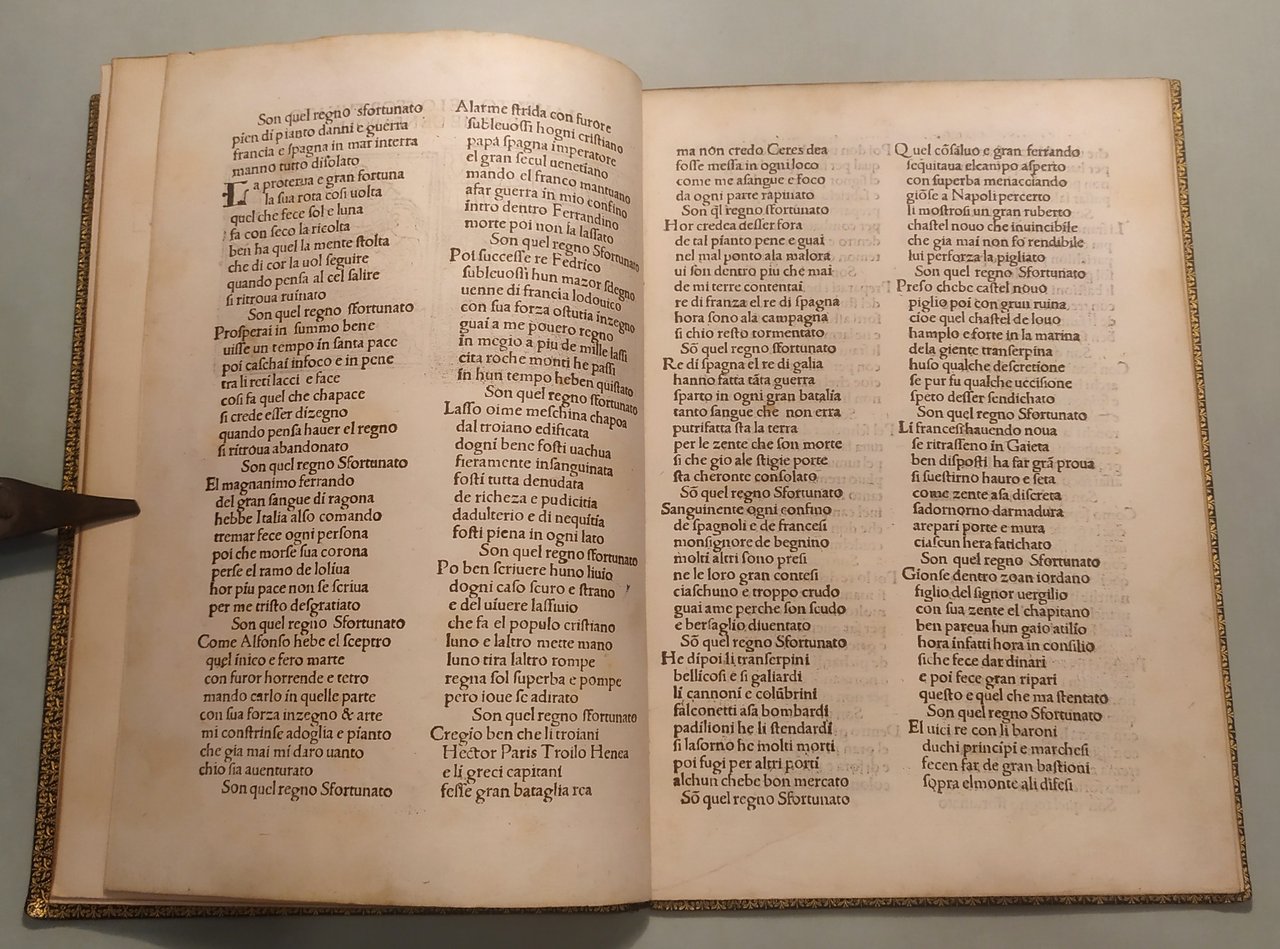 Son quel regno sfortunato
pien di pianto danni e guerra
francia e spagna in mar interra
manno tutto disolato
La proterua e gran fortuna
la sua rota cosi uolta
quel che fece sol e luna
fa con seco la ricolta
ben ha quel la mente stolta
che di cor la uol seguire
quando pensa al cel salire
si ritroua ruinato
Son quel regno sfortunato
Prosperai in summo bene
uisse un tempo in santa pace
poi caschai infoco e in pene
tra li reti lacci e face
cosi fa quel che chapace
si crede esser dizegno
quando pensa hauer el regno
si ritroua abandonato
Son quel regno Sfortunato
El magnanimo ferrando
del gran sangue di ragona
hebbe Italia also comando
tremar fece ogni persona
poi che morse sua corona
perse el ramo de loliua
hor piu pace non se scriua
per me tristo desgratiato
Son quel regno Sfortunato
Come Alfonso hebe el sceptro
quel inico e fero marte
con furor horrende e tetro
mando carlo in quelle parte
con sua forza inzegno & arte
mi constrinse adoglia e pianto
che gia mai mi daro uanto
chio sia auenturato
Son quel regno Sfortunato
Alarme strida con furore
subleuossi hogni cristiano
papa spagna imperatore
el gran secul uenetiano
mando el franco mantuano
afar guerra in mio confino
intro dentro Ferrandino
morte poi non la lassato
Son quel regno Sfortunato
Poi successe re Fedrico
subleuossi hun mazor sdegno
uenne di francia lodouico
con sua forza ostutia inzegno
guai a me pouero regno
in megio a piu de mille lassi
cita roche monti he passi
in hun tempo heben quistato
Son quel regno sfortunato
Lasso oime meschina chapoa
dal troiano edificata
dogni bene fosti uachua
fieramente insanguinata
fosti tutta denudata
de richeza e pudicitia
dadulterio e di nequitia
fosti piena in ogni lato
Son quel regno sfortunato
Po ben scriuere huno liuio
dogni caso scuro e strano
e del uiuere lassiuio
che fa el populo cristiano
luno e laltro mette mano
luno tira laltro rompe
regna sol superba e pompe
pero ioue se adirato
Son quel regno sfortunato
Cregio ben che li troiani
Hector Paris Troilo Henea
e li greci capitani
fesse gran bataglia rea
ma non credo Ceres dea
fosse messa in ogni loco
come me asangue e foco
da ogni parte rapinato
Son ql̄ regno sfortunato
Hor credea desser fora
de tal pianto pene e guai
nel mal ponto ala malora
ui son dentro piu che mai
de mi terre contentai
re di franza el re di spagna
hora sono ala campagna
si chio resto tormentato
Sō quel regno sfortunato
Re di spagna el re di galia
hanno fatta tāta guerra
sparto in ogni gran batalia
tanto sangue che non erra
putrifatta sta la terra
per le zente che son morte
si che gio ale stigie porte
sta cheronte consolato
Sō quel regno Sfortunato
Sanguinente ogni confino
de spagnoli e de francesi
monsignore de begnino
molti altri sono presi
ne le loro gran contesi
ciaschuno e troppo crudo
guai ame perche son scudo
e bersaglio diuentato
Sō quel regno Sfortunato
He dipoi li transerpini
bellicosi e si galiardi
li cannoni e colūbrini
falconetti asa bombardi
padilioni he li stendardi
si lasorno he molti morti
poi fugi per altri porti
alchun chebe bon mercato
Sō quel regno Sfortunato
Quel cōsaluo e gran ferrando
sequitaua elcampo asperto
con superba menacciando
giōse a Napoli percerto
li mostrosi un gran ruberto
chastel nouo che inuincibile
che gia mai non fo rendibile
lui perforza la pigliato
Son quel regno Sfortunato
Preso chebe castel nouo
piglio poi con grun ruina
cioe quel chastel de louo
hamplo e forte in la marina
dela giente transerpina
huso qualche descretione
se pur fu qualche uccisione
spero desser sendichato
Son quel regno Sfortunato
Li francesi hauendo noua
se ritrasseno in Gaieta
ben disposti ha far grā proua
si suestirno hauro e seta
come zente asa discreta
sadornorno darmadura
arepari porte e mura
ciascun hera fatichato
Son quel regno Sfortunato
Gionse dentro zoan iordano
figlio del signor uergilio
con sua zente el chapitano
ben pareua hun gaio atilio
hora infatti hora in consilio
siche fece dar dinari
e poi fece gran ripari
questo e quel che ma stentato
Son quel regno Sfortunato
El uici re con li baroni
duchi principi e marchesi
fecen far de gran bastioni
sopra elmonte ali difesi